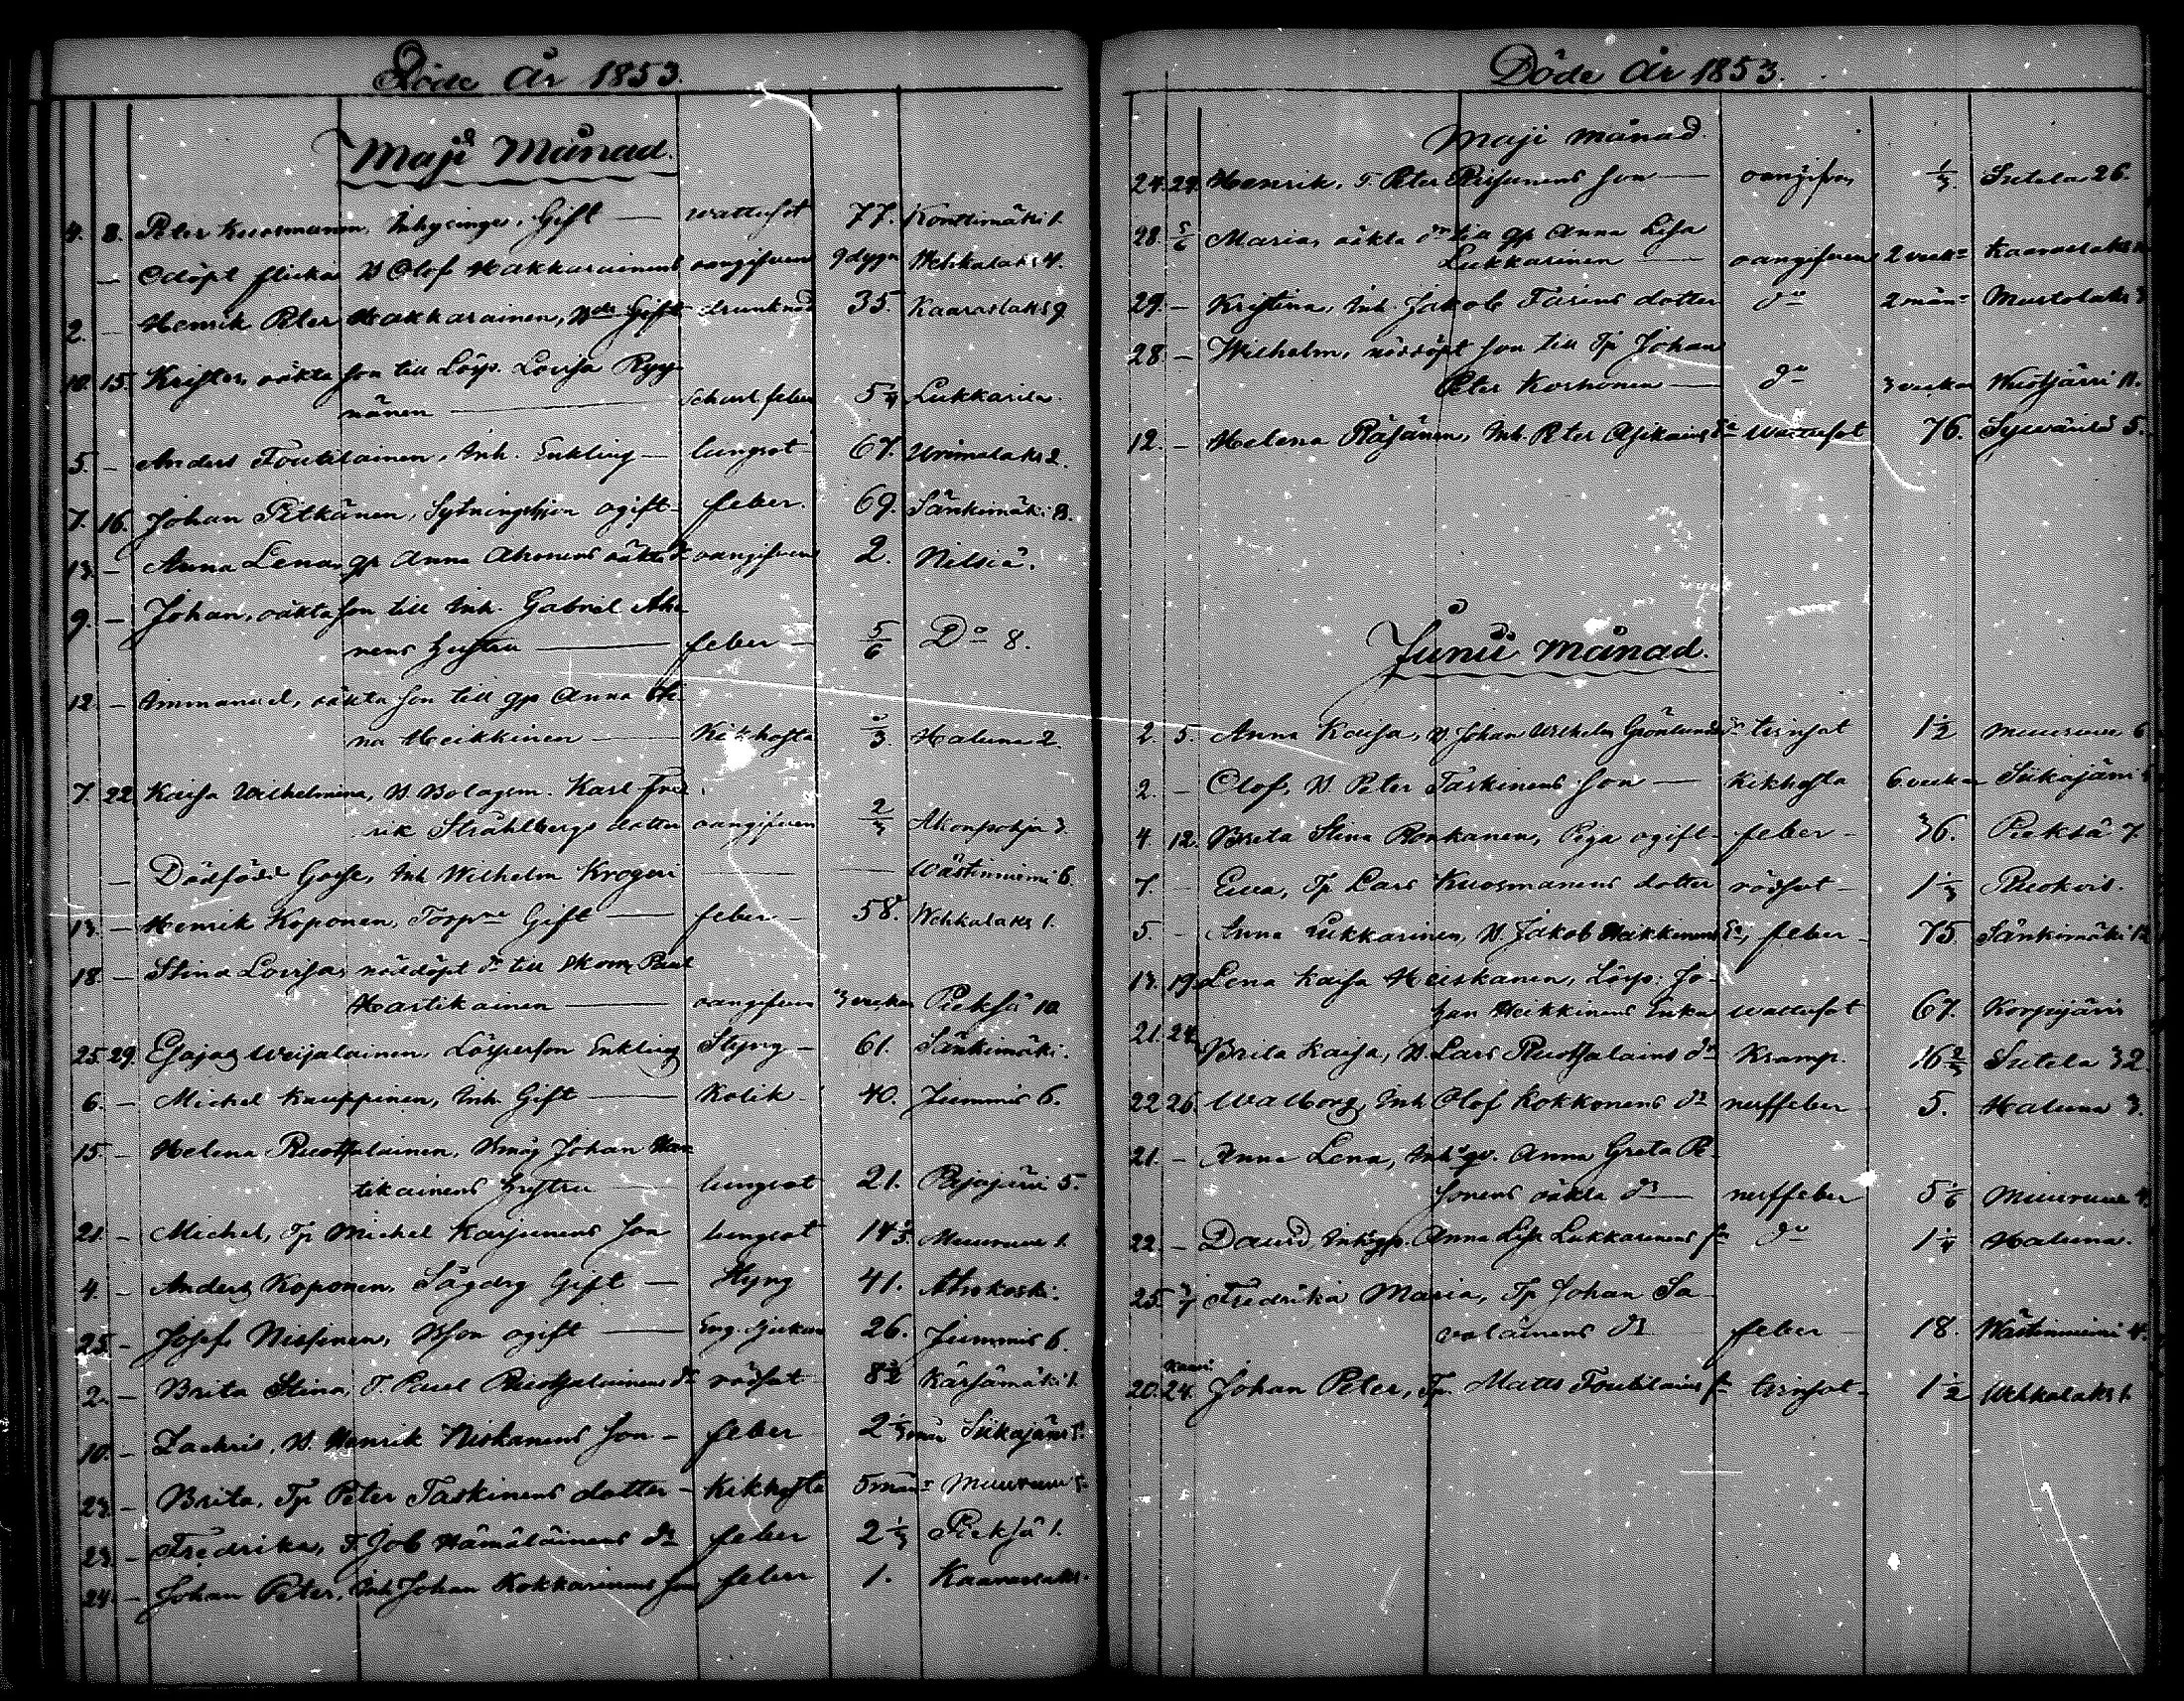 Döde år 1853.
Maji Månad.
4. 8. Peter Kuosmanen, Inhysinge, Gift — wattusot 77. Konttimäki 1.
— Odöpt flicka B Olof Hakkarainens oangifven 9 dygn Wehkalaks 4.
2. — Henrik Peter Hakkarainen, Gift drunknad 35. Kaaraslaks 9
10. 15. Krister, oäkta son till Lösp. Lovisa Ryy-
nänen — feber 5 1/4 Lukkarila.
5. — Anders Toutilainen, Inh. Enkling — lungsot 67. Urimolaks 2.
7. 16. Johan Pitkänen, Sytningshjon ogift — feber. 69. Sänkimäki 8.
13. — Anna Lena, gp Anna Ahonens oäkta dr oangifven 2. Nilsiä.
9. — Johan, oäkta son till Inh. Gabriel Aho-
nens hustru — feber — 5/6 Do 8.
12. — Immanuel, oäkta son till gp Anna Sti-
na Heikkinen — Kikhosta /3. Haluna 2.
7. 22. Kaisa Wilhelmina, B Bolagsm. Karl Fred-
rik Stråhlbergs dotter oangifven 2/3 Akonpohja 3.
— Dödfödd Gosse, Inh Wilhelm Krogeri — — Wästinniemi 6.
13. — Henrik Koponen, Torpre Gift — feber — 58. Wehkalaks 1.
18. — Stina Lovisa, nöddöpt dr till Skom. Paul
Hartikainen — oangifven 3 veckor Pieksä 10.
25. 29. Esajas Weijalainen, Lösperson Enkling Styng — 61. Sänkimäki.
6. — Michel Knuppinen, Inh. Gift — Kolik 40. Jummis 6.
15. — Helena Ruotsalainen, Bmåg Johan Har-
tikainens hustru — lungsot 21. Pajajärvi 5.
21. — Michel, Tp Michel Karjunens son lungsot 14 1/3. Muuruve 1.
4. — Anders Koponen, Sågdrg Gift — Styng 41. Ahokoski.
25. — Josef Nissinen, Bson ogift — Eng. sjukan 26. Jummis 6.
2. — Brita Stina, T. Paul Ruotsalainens dr rödsot 8 1/2 Kärsämäki 1.
10. — Zachris, B. Henrik Niskanens son — feber 2 1/3 mån Siikajärvi 5.
23. — Brita, Tp Peter Taskinens dotter — Kikhosta 5 månr Muuruve 5.
23. — Fredrika, T. Job Hämäläinens dr feber 2 1/3 Pieksä 1.
24. — Johan Peter, Inh Johan Kokkarinens son feber 1. Kaaraslaks.
Döde år 1853.
Maji månad.
24. 29. Henrik, T. Peter Pirhunens son — oangifven 1/3. Sutela 26.
28. 5/6 Maria, oäkta dr till gp Anna Lisa
Lukkarinen — oangifven 2 veckr Kaaraslaks
29. — Kristina, Inh. Jakob Tarins dotter do 2 månr Murtolaks 3
28. — Wilhelm, nöddöpt son till Tp Johan
Peter Korhonen — do 3 veckor Wuotjärvi 11.
12. — Helena Räsänen, Inh. Peter Asikains Ea wattusot 76. Syvänsi 5.
Junii Månad.
2. 5. Anna Kaisa, B Johan Wilhelm Grönlunds dr trinsot 1 1/2 Muuruve 6
2. — Olof, B. Peter Taskinens son — Kikhosta 6 veckor Siikajärvi
4. 12. Brita Stina Ronkanen, Piga ogift — feber — 36. Pieksä 7.
7. — Eeva, Tp Lars Kuosmanens dotter rödsot — 1 1/3 Ruokvir.
5. — Anna Lukkarinen, B. Jakob Hakkinens Ea, feber — 75. Sänkimäki 12
13. 19. Lena Kaisa Heiskanen, Lösp: Jo-
han Heikkinens Enka wattusot 67. Korpijärvi
21. 24. Brita Kaisa, B. Lars Ruotsalains dr Kramp. 16 2/3 Sutela 32.
22. 26. Walborg, Inh Olof Kokkonens dr nerffeber 5. Haluna 3.
21. — Anna Lena, Inhs gp. Anna Greta Pe-
sonens oäkta dr — nerffeber 5 1/6 Muuruve 4.
22. — David, Inhs gp. Anna Lisa Lukkarinens sn do 1 1/4 Haluna.
25. 3/7 Fredrika Maria, Tp Johan Sa-
volainens dr — feber — 18. Wästinniemi 4.
Kaavi
20. 24. Johan Peter, Tp. Matts Toutilains sn trinsot — 1 1/2 Wehkalaks 1.